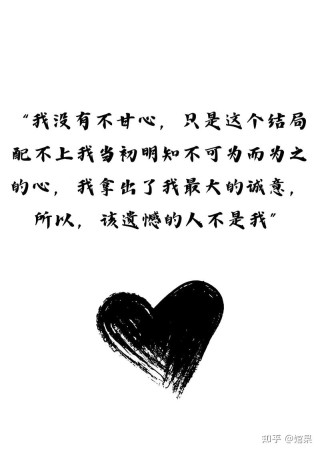 “我没有不甘心，只是这个结局
配不上我当初明知不可为而为之
的心，我拿出了我最大的诚意，
所以，该遗憾的人不是我”
知乎 @媗杲